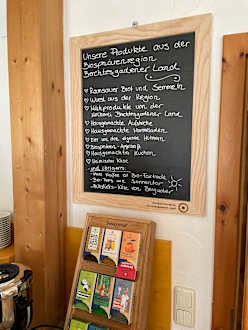 Unsere Produkte aus der
Biosphärenregion
Berchtesgadener Land
♡ Ramsauer Brot und Semmeln
♡ Wurst aus der Region
♡ Milchprodukte von der
Molkerei Berchtesgadener Land
♡ Hausgemachte Aufstriche
♡ Hausgemachte Marmeladen
♡ Eier von den eigenen Hühnern
♡ Biosphären-Apfelsaft
♡ Hausgemachter Kuchen
♡ Heimischer Käse
und übrigens:
- Kaffee ist Bio-Fairtrade
- Bio-Tees von Sonnentor
- von Bergader